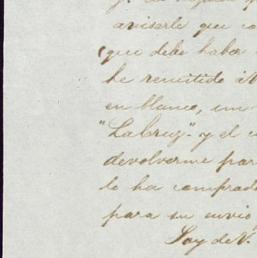 avisarle que
(que debe haber
he remitido
en blanco, un
"Labruz" y el
devolverme par
lo ha comprado
para su envio
Soy de V.